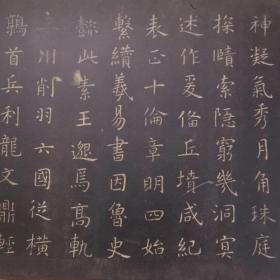 神凝氣秀月角珠庭
探賾索隱窮幾洞冥
述作爰俻丘墳咸紀
表正十倫章明四始
繫纘羲易書因魯史
懿此素王邈焉高軌
三川削弱六國從橫
鶉首兵利龍文鼎輕